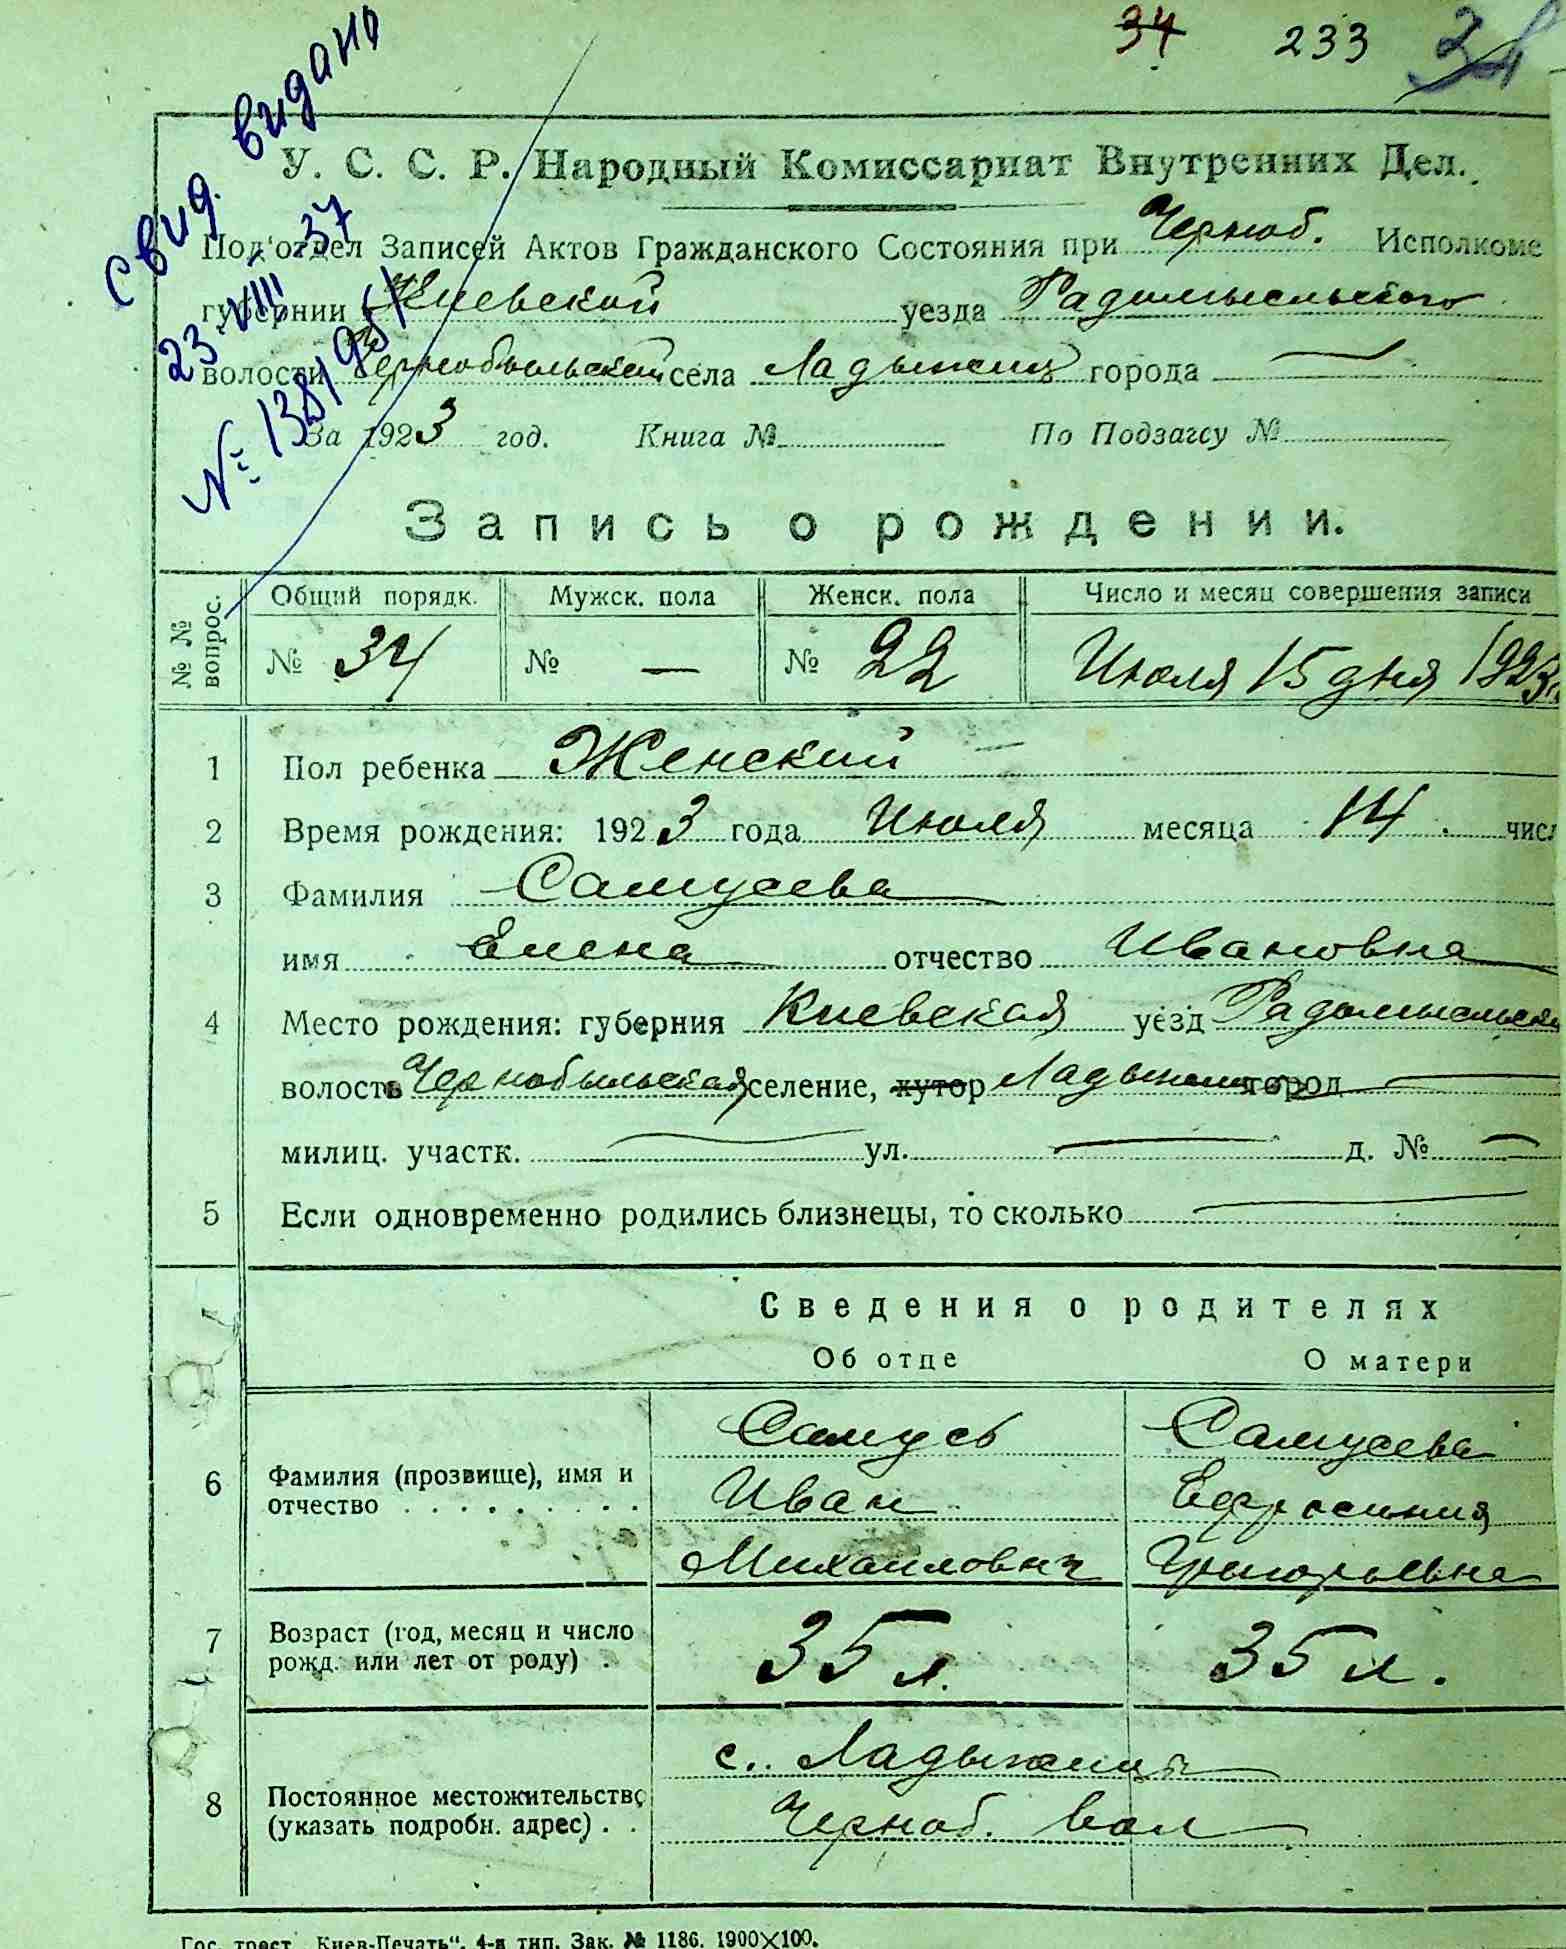 34 233 34
Свид. видано
23 VIII 37
№ 138/951
У. С. С. Р. Народный Комиссариат Внутренних Дел.
Под'отдел Записей Актов Гражданского Состояния при Черноб. Исполкоме
губернии Киевской уезда Радомысльского
волости Чернобыльской села Ладыжич города —
За 1923 год. Книга № По Подзагсу №
Запись о рождении.
№ № вопрос.
Общий порядк. Мужск. пола Женск. пола Число и месяц совершения записи
№ 34 № — № 22 Июля 15 дня 1923 г.
1 Пол ребенка Женский
2 Время рождения: 1923 года Июля месяца 14 числ
3 Фамилия Самусева
имя Елена отчество Ивановна
4 Место рождения: губерния Киевская уезд Радомысльск
волость Чернобыльская селение, хутор Ладыжичи город —
милиц. участк. — ул. — д. № —
5 Если одновременно родились близнецы, то сколько —
Сведения о родителях
Об отце О матери
Самусь Самусева
6 Фамилия (прозвище), имя и отчество Иван Ефросиния
Михаилович Григорьевна
7 Возраст (год, месяц и число рожд. или лет от роду) . 35 л. 35 л.
с. Ладыжичи
8 Постоянное местожительство (указать подробн. адрес) . . Черноб. вол
Гос. трест „Киев-Печать“. 4-я тип. Зак. № 1186. 1900×100.